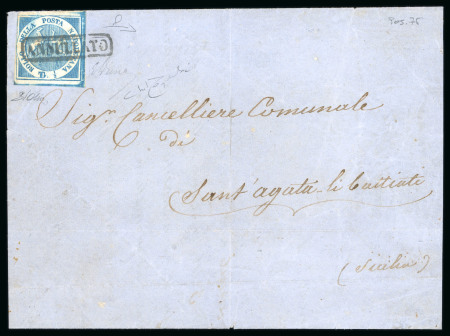 Pos. 75
BOLLO DELLA POSTA NAPOLETANA
ANNULLATO
Sig.r Cancelliere Comunale
di
Sant'agata li Battiati
(Sicilia)